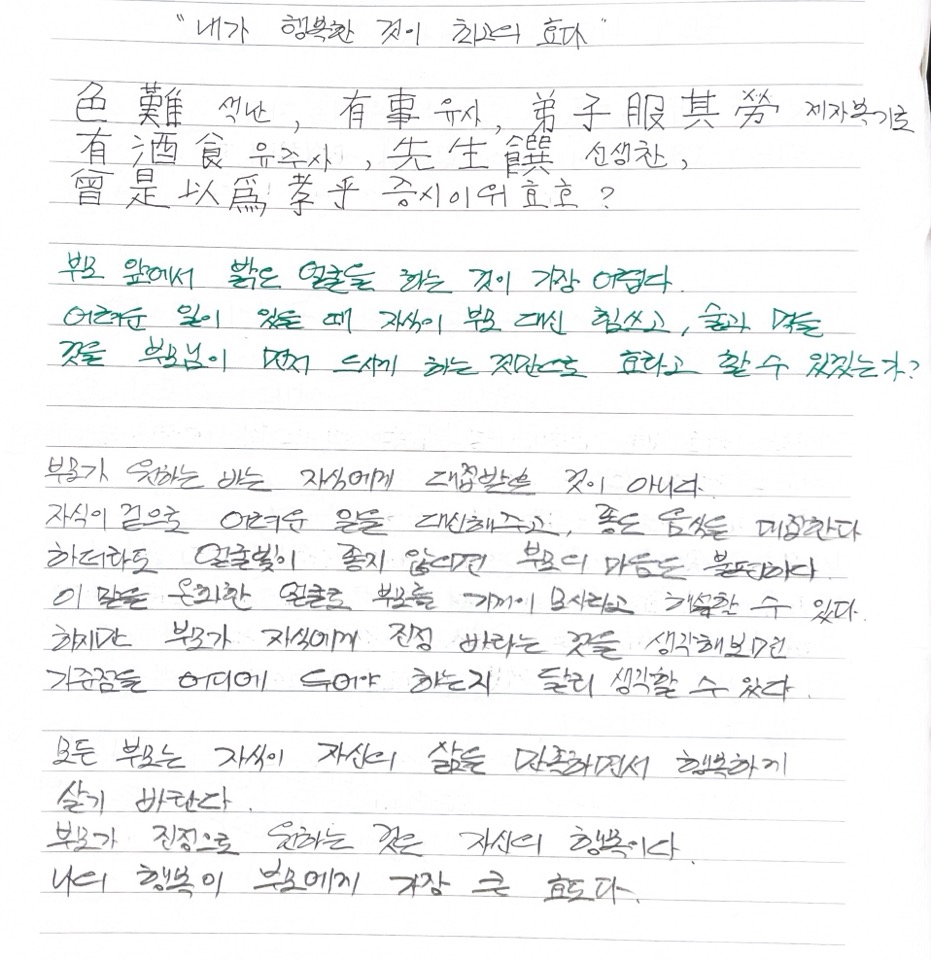 "내가 행복한 것이 최고의 효다"
色難 색난, 有事 유사, 弟子服其勞 제자복기로
有酒食 유주사, 先生饌 선생찬,
曾是以爲孝乎 증시이위효호?
부모 앞에서 밝은 얼굴을 하는 것이 가장 어렵다.
어려운 일이 있을 때 자식이 부모 대신 힘쓰고, 술과 먹을
것을 부모님이 먼저 드시게 하는 것만으로 효라고 할 수 있겠는가?
부모가 원하는 바는 자식에게 대접받는 것이 아니다.
자식이 겉으로 어려운 일을 대신해주고, 좋은 음식을 대접한다
하더라도 얼굴빛이 좋지 않으면 부모의 마음은 불편하다.
이 말을 온화한 얼굴로 부모를 기꺼이 모시라고 해석할 수 있다.
하지만 부모가 자식에게 진정 바라는 것을 생각해보면
기준점을 어디에 두어야 하는지 달리 생각할 수 있다.
모든 부모는 자식이 자신의 삶을 만족하면서 행복하게
살기 바란다.
부모가 진정으로 원하는 것은 자신의 행복이다.
나의 행복이 부모에게 가장 큰 효도다.